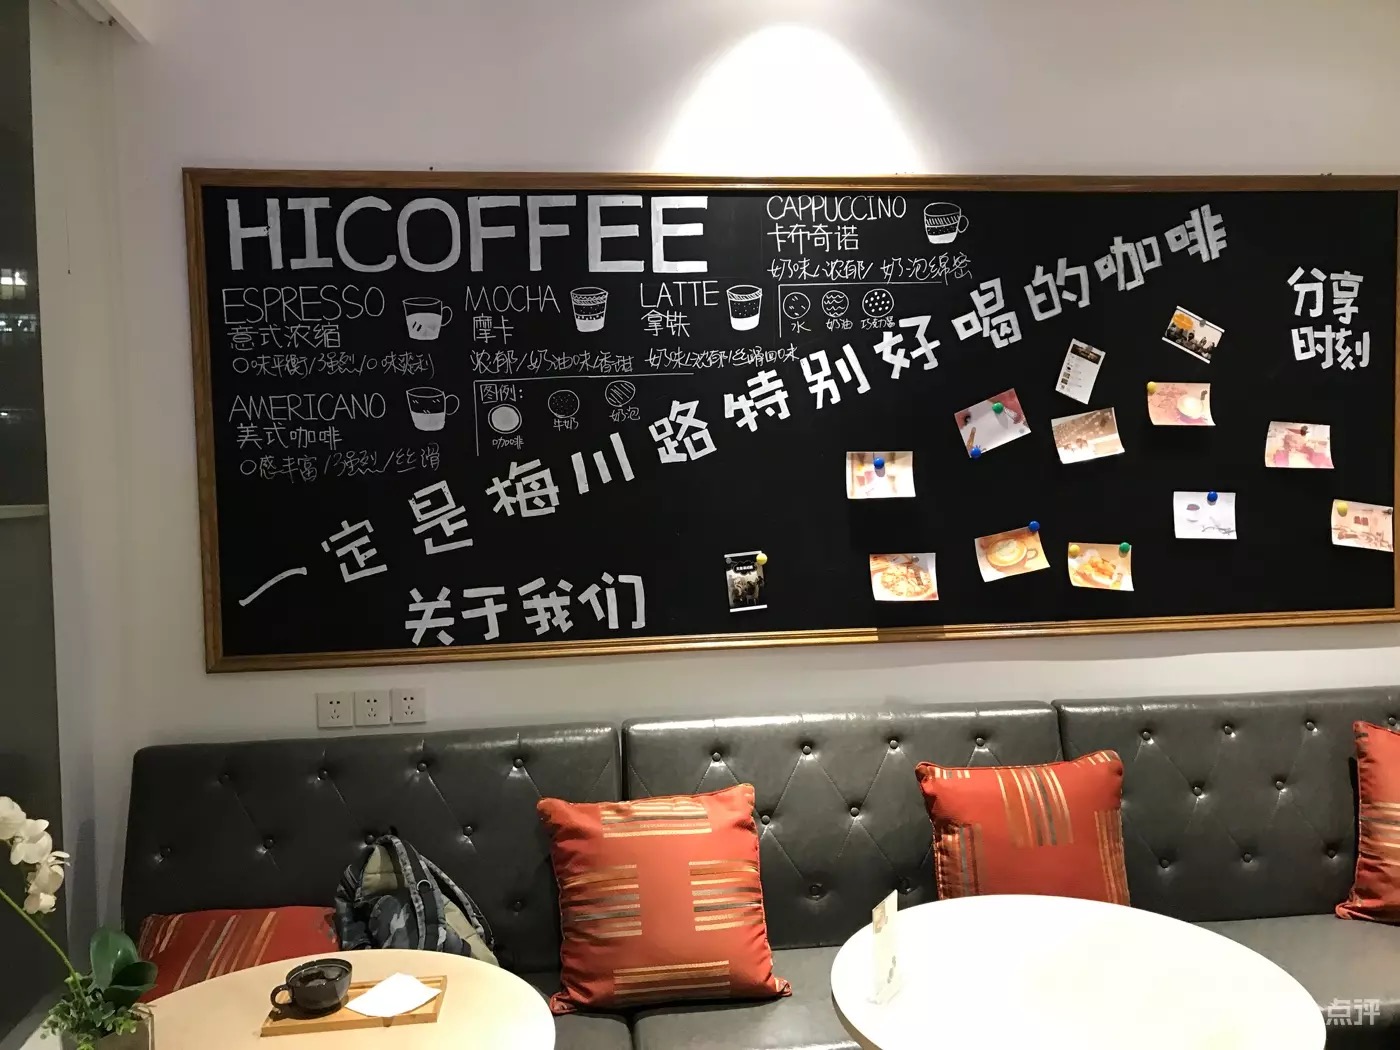 HICOFFEE
CAPPUCCINO
卡布奇诺
奶味/浓郁/奶泡绵密
水
奶油
巧克力酱
ESPRESSO
意式浓缩
口味平衡/强烈/口味爽利
MOCHA
摩卡
浓郁/奶油味/香甜
LATTE
拿铁
奶味/浓郁/丝滑回味
图例:
咖啡
牛奶
奶泡
AMERICANO
美式咖啡
口感丰富/强烈/丝滑
一定是梅川路特别好喝的咖啡
分享
时刻
关于我们
点评